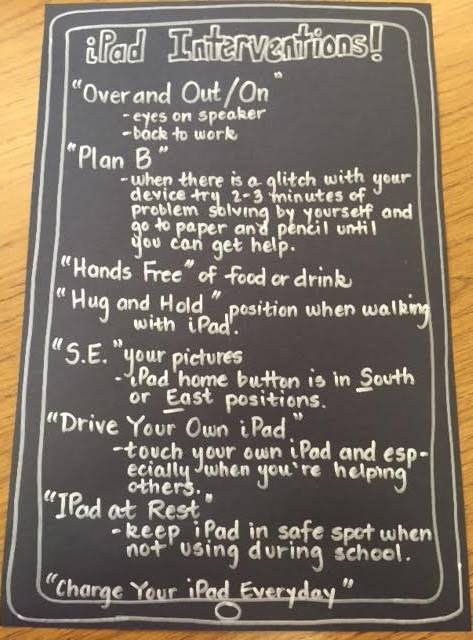 iPad Interventions!
"Over and Out/On"
- eyes on speaker
- back to work
"Plan B"
- when there is a glitch with your
device try 2-3 minutes of
problem solving by yourself and
go to paper and pencil until
you can get help.
"Hands Free" of food or drink
"Hug and Hold" position when walking
with iPad.
"S.E." your pictures
- iPad home button is in South
or East positions.
"Drive Your Own iPad"
- touch your own iPad and esp-
ecially when you're helping
others.
"IPad at Rest"
- keep iPad in safe spot when
not using during school.
"Charge Your iPad Everyday"